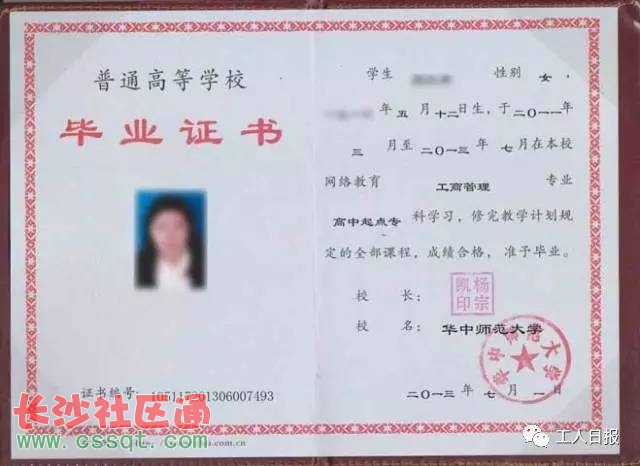 普通高等学校
毕业证书
证书编号: 105117201306007493
学生 性别 女,
年 五 月 十二 日生,于 二〇一一 年
三 月至 二〇一三 年 七 月在本校
网络教育 工商管理 专业
高中起点专 科学习,修完教学计划规
定的全部课程,成绩合格,准予毕业。
校 长:
杨宗凯印
校 名: 华中师范大学
华中师范大学
二〇一三 年 七 月 一 日
长沙社区通
www.cssqt.com
工人日报